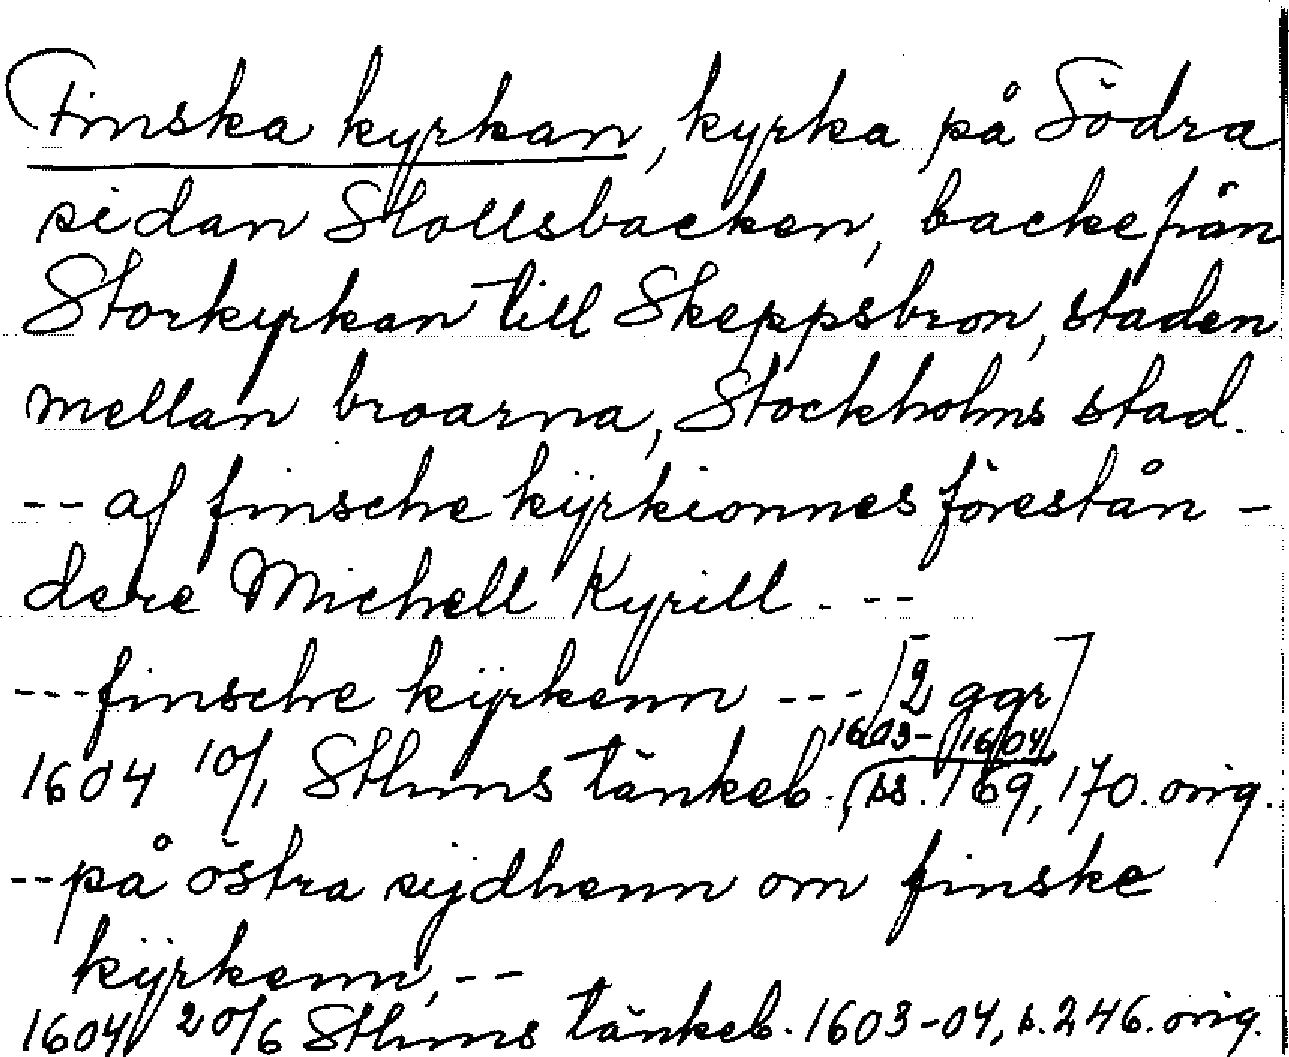 Finska kyrkan, kyrka på Södra
sidan Slottsbacken, backe från
Storkyrkan till Skeppsbron, staden
mellan broarna, Stockholms stad.
-- af finsche kÿrkionnes förestån-
dere Michell Kyrill. --
--- finsche kÿrkenn --- [2 ggr]
1603- 1604
1604 10/1 Sthms tänkeb., ss. 169, 170. orig.
-- på östra sijdhenn om finske
kÿrkenn, --
1604 20/6 Sthms tänkeb. 1603-04, s. 246. orig.